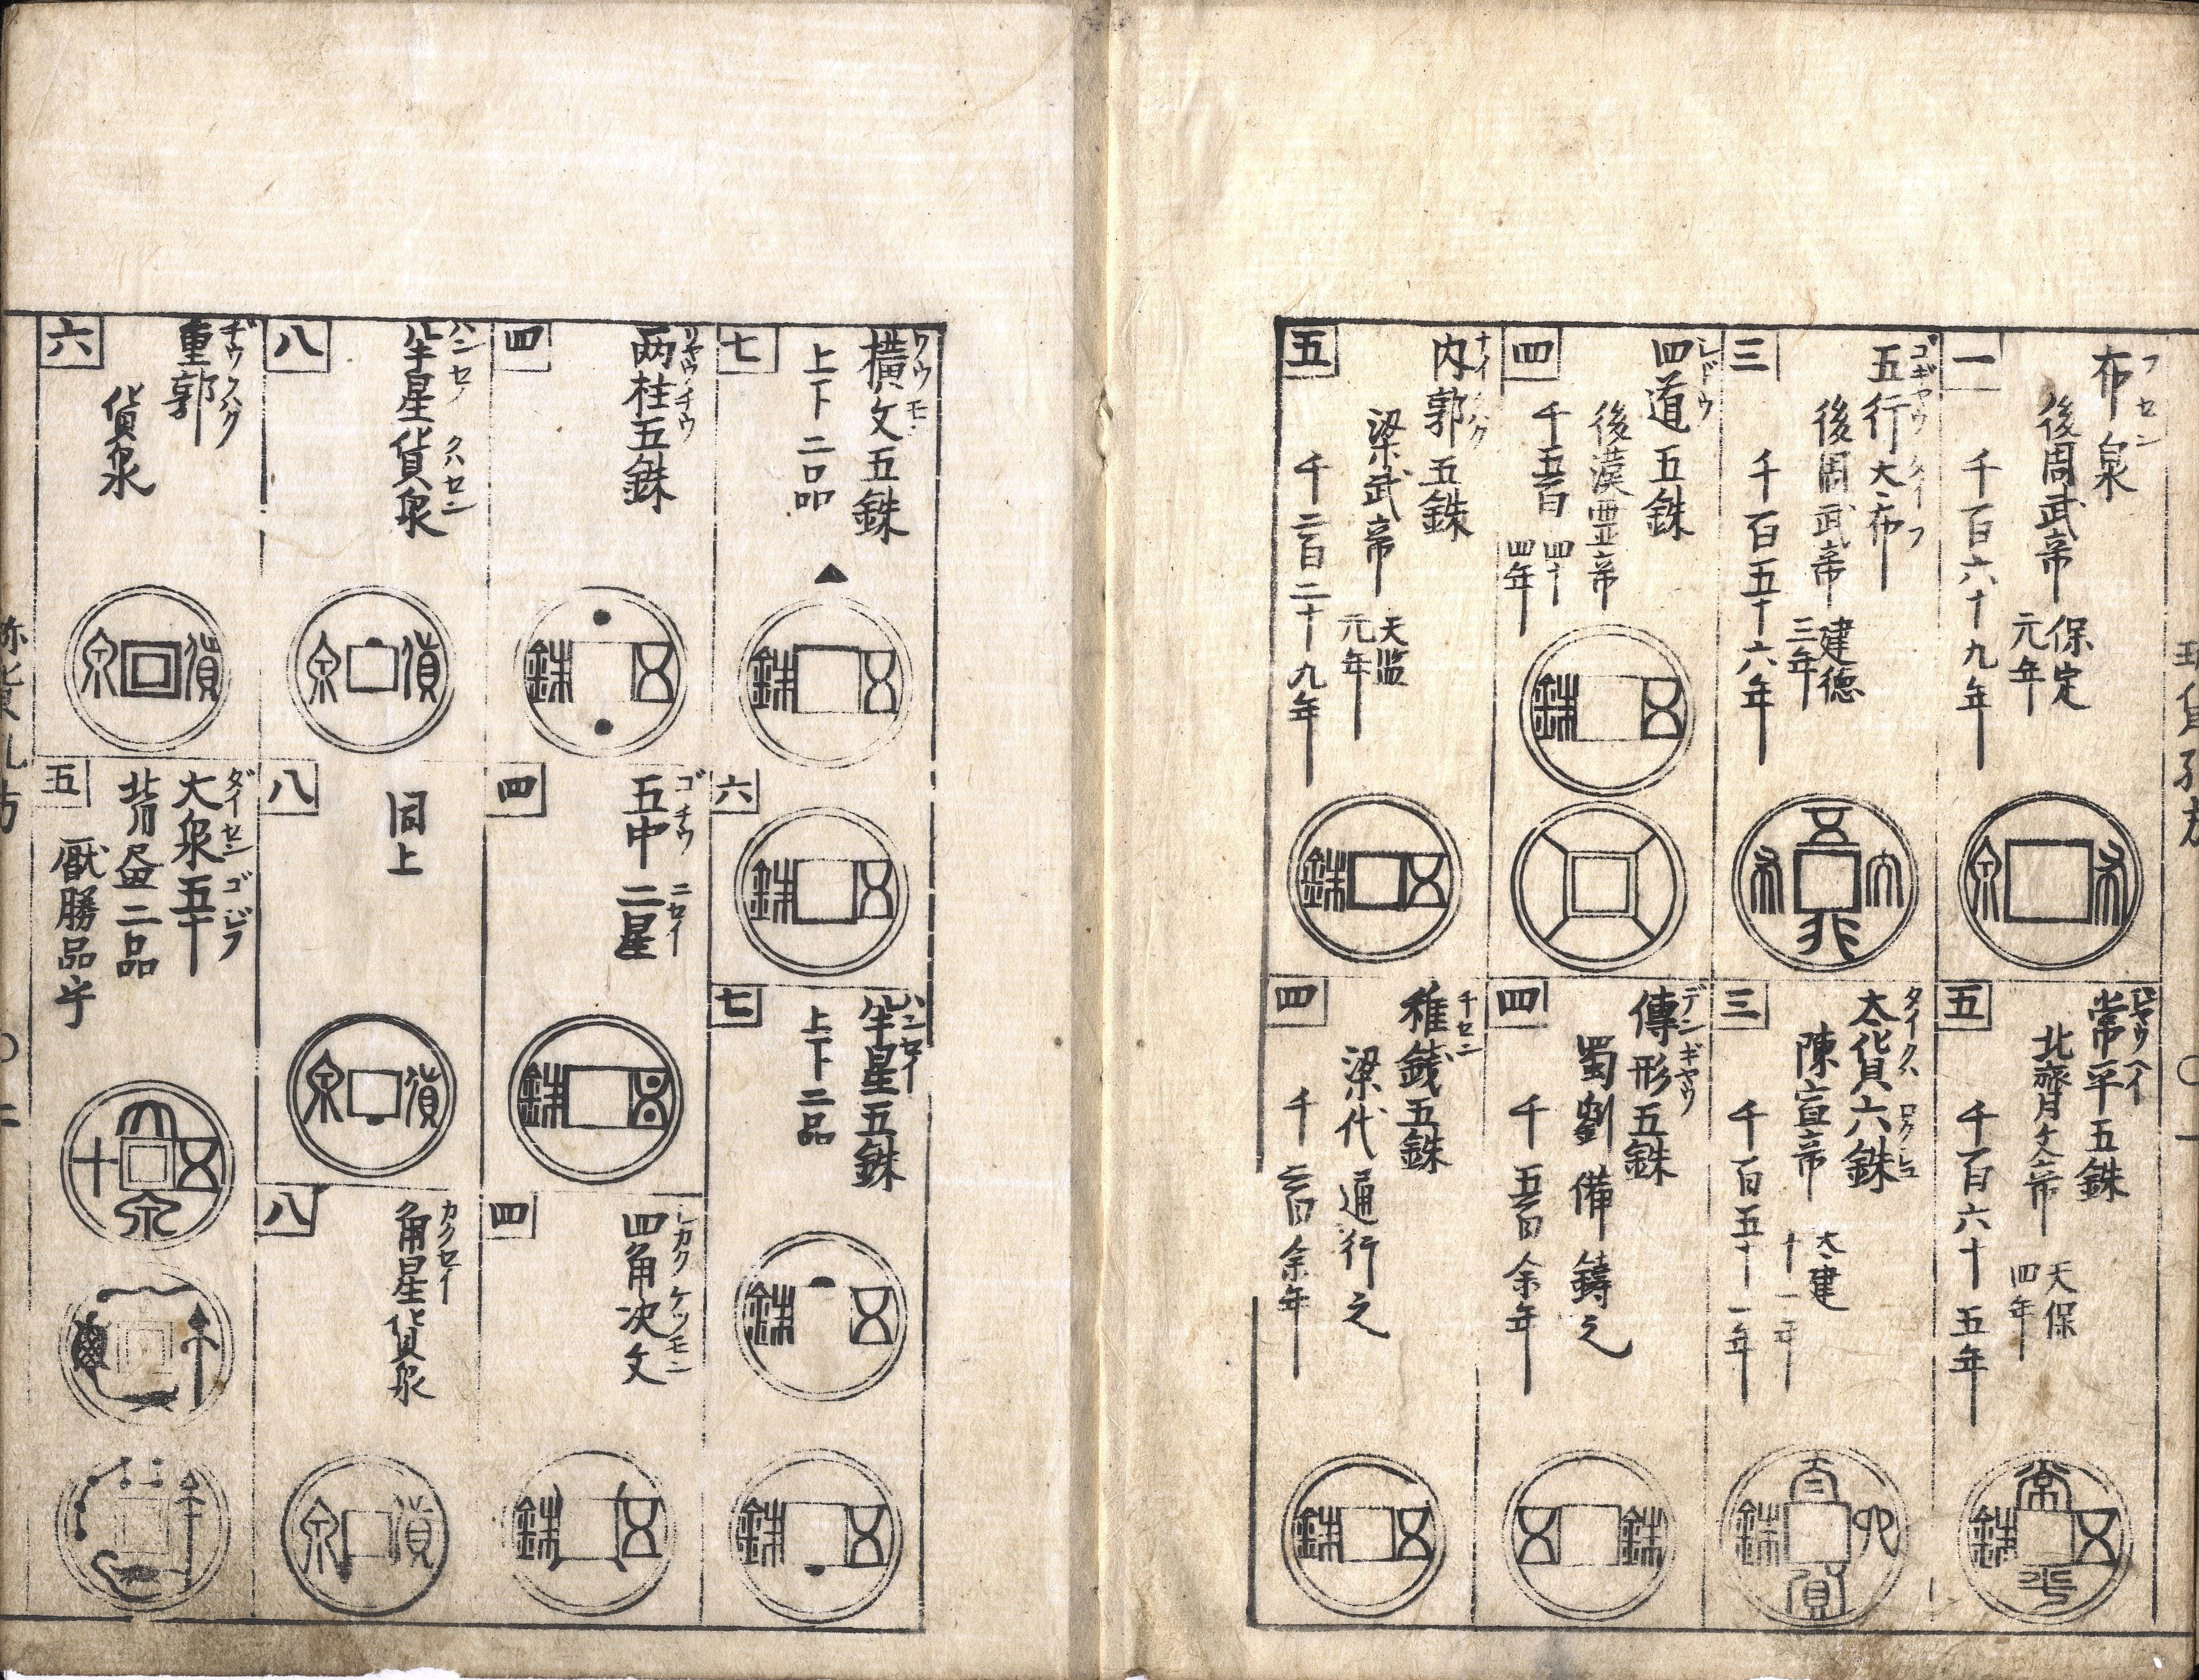 一
布泉
フセン
後周武帝
保定
元年
千百六十九年
泉
布
三
五行大布
ゴギヤウタイフ
後周武帝
建德
三年
千百五十六年
五
大
布
行
四
四道五銖
シドウ
後漢霊帝
千五百
四十
四年
五
銖
五
内郭五銖
ナイクハク
梁武帝
天监
元年
千二百二十九年
五
銖
五
常平五銖
北齊文帝
天保
四年
千百六十五年
常
五
銖
平
三
太貨六銖
タイクハロクシユ
陳宣帝
大建
十一年
千百五十一年
太
六
銖
貨
四
傳形五銖
デンギヤウ
蜀劉備鑄之
千五百余年
銖
五
四
稚銭五銖
チセン
梁代通行之
千二百余年
五
銖
七
橫文五銖
ワウモン
上下二品
五
銖
六
五
銖
七
半星五銖
ハンセイ
上下二品
五
銖
五
銖
四
两柱五銖
リヤウチウ
五
銖
四
五中二星
ゴチウニセイ
五
銖
四
四角决文
シカクケツモン
五
銖
八
半星貨泉
ハンセイクハセン
貨
泉
八
同上
貨
泉
八
角星貨泉
カクセイ
貨
泉
六
重郭
ヂウクハク
貨泉
貨
泉
五
大泉五十
ダイセンゴジフ
背有二品
厭勝品乎
大
五
十
泉
〇一
〇二